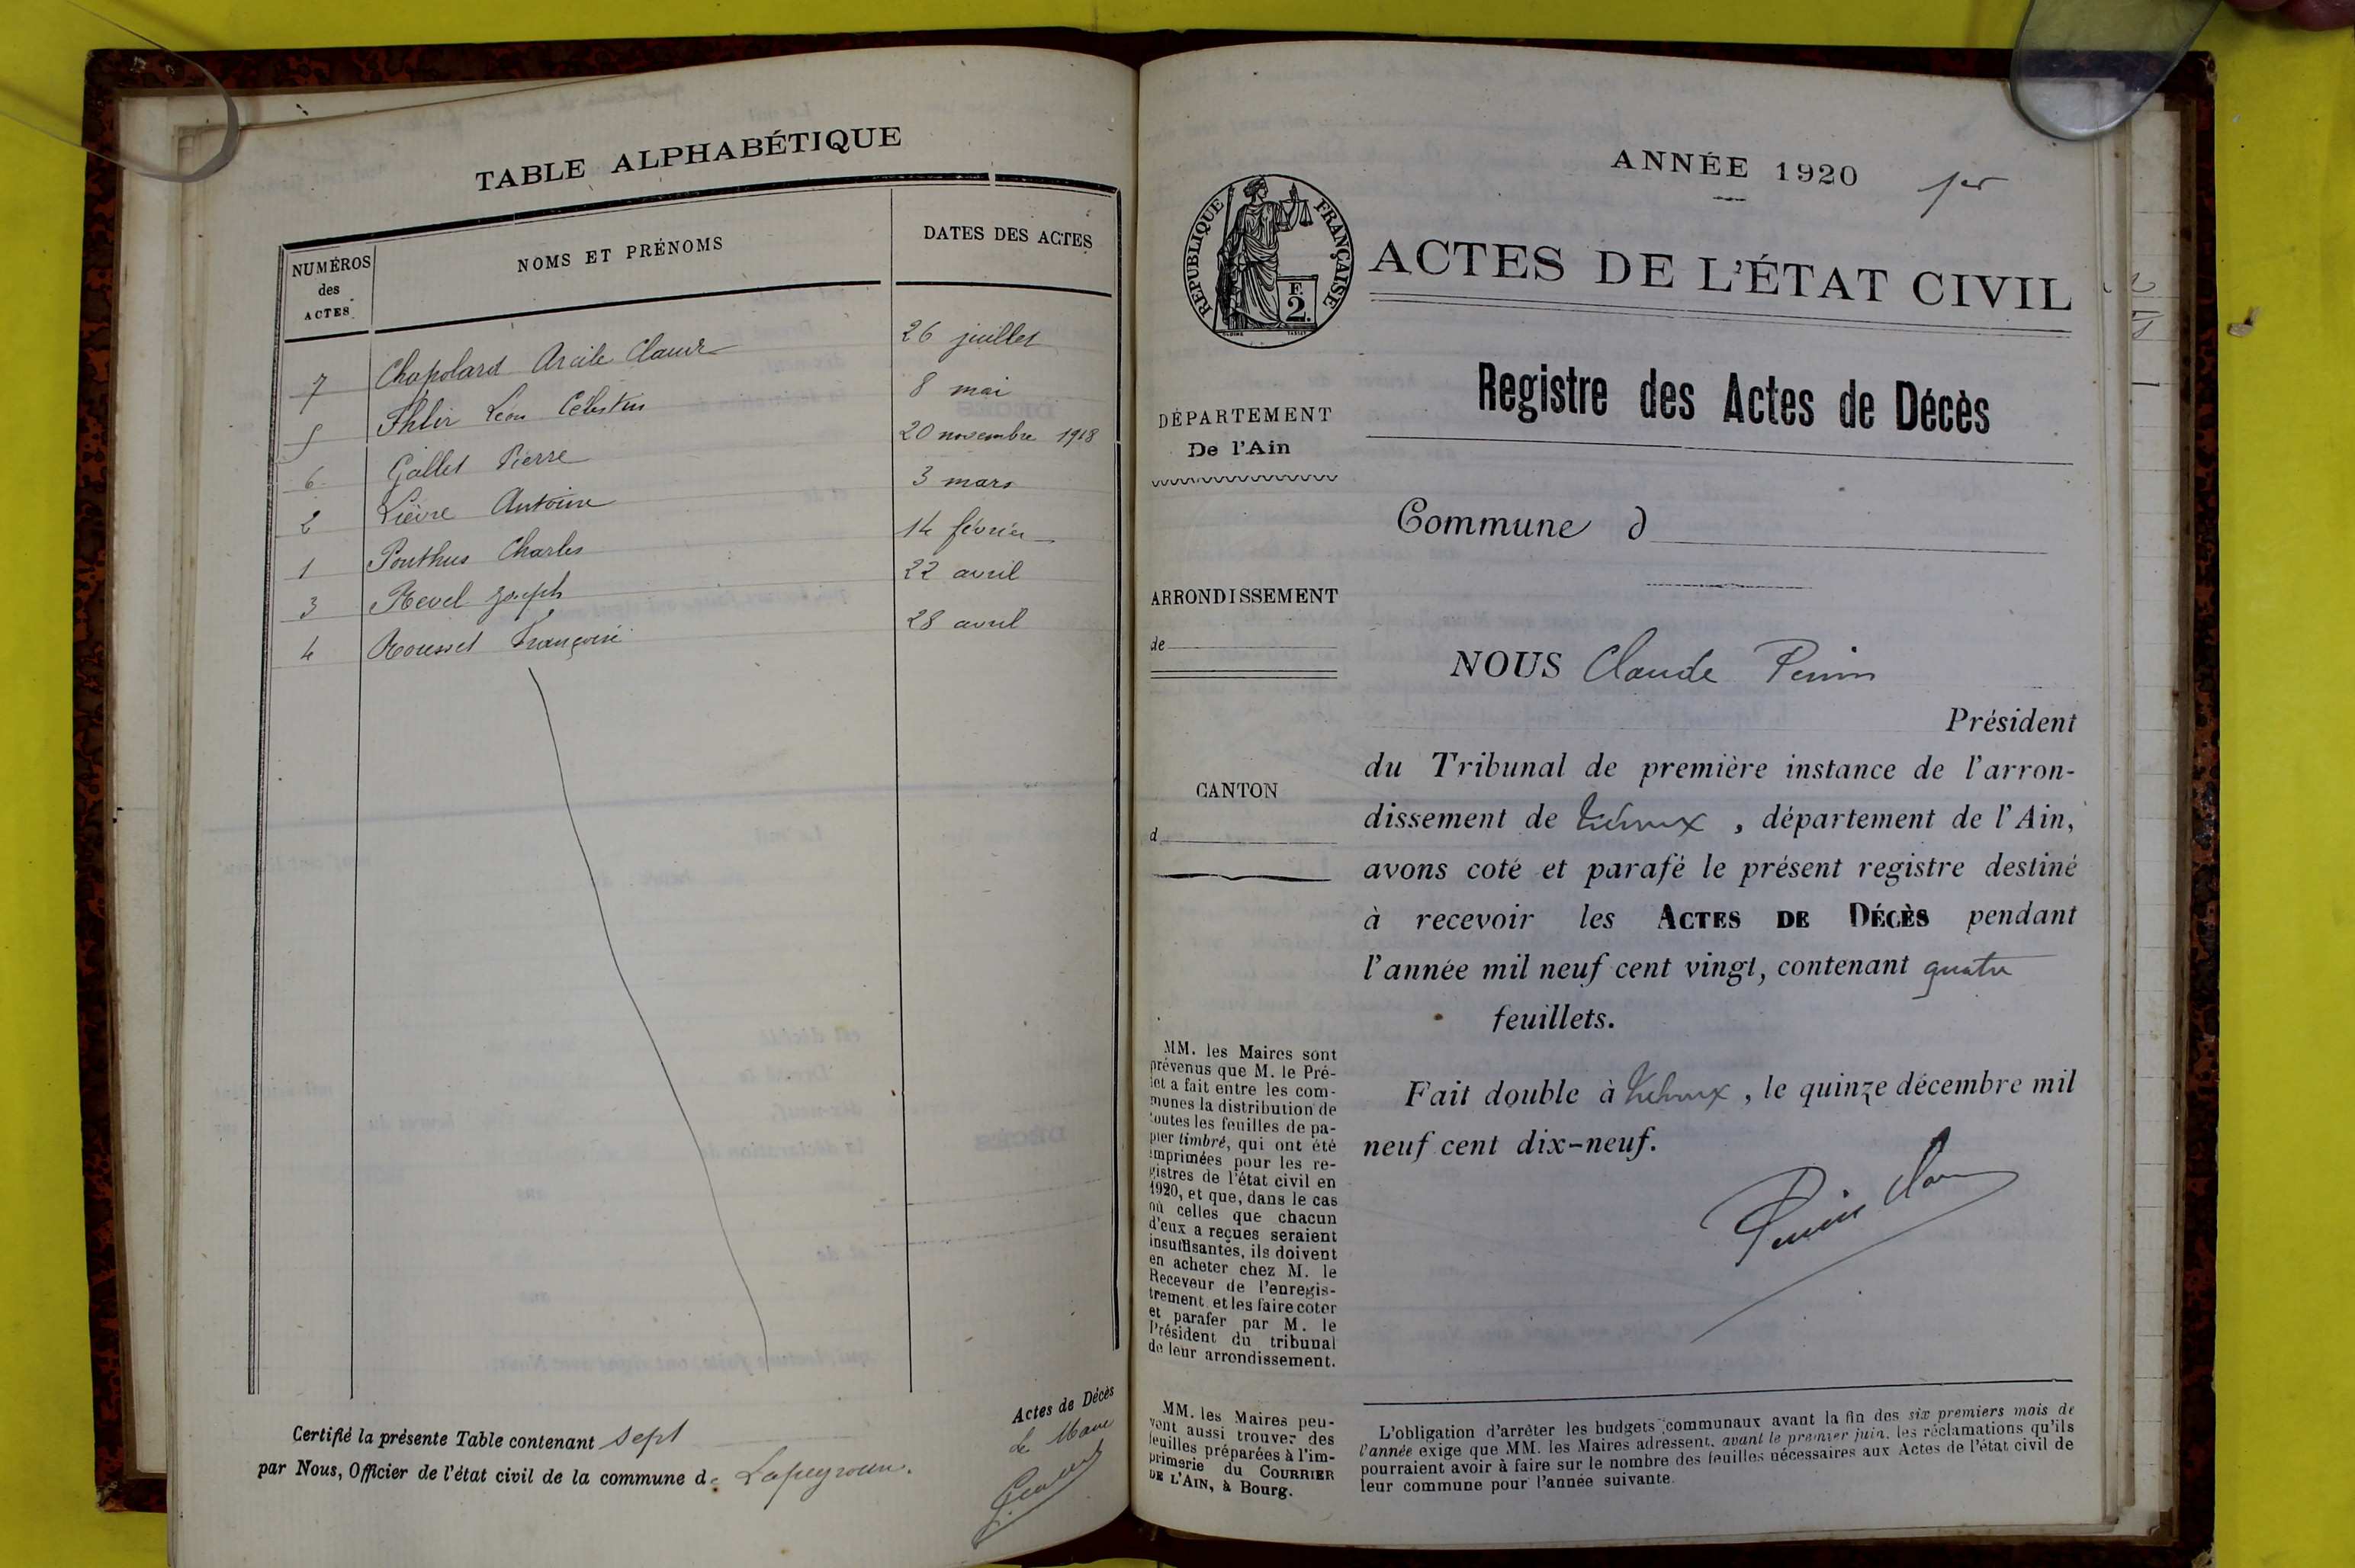 TABLE ALPHABÉTIQUE
NUMÉROS des ACTES
NOMS ET PRÉNOMS
DATES DES ACTES
7 Chapolard Claude 26 juillet
5 Léon Célestin 8 mai
6 Gallet Pierre 20 novembre 1918
2 Lièvre Antoine 3 mars
1 Ponthus Charles 14 février
3 Revel Joseph 22 avril
4 Rousset 28 avril
Certifié la présente Table contenant sept
Actes de Décès
par Nous, Officier de l'état civil de la commune de Lapeyrouse.
Le Maire
ANNÉE 1920 1er
RÉPUBLIQUE FRANÇAISE
F.
2.
ACTES DE L'ÉTAT CIVIL
Registre des Actes de Décès
DÉPARTEMENT
De l'Ain
Commune d
ARRONDISSEMENT
de
NOUS Claude Perrin
Président
CANTON
d
du Tribunal de première instance de l'arron-
dissement de Trévoux, département de l'Ain,
avons coté et parafé le présent registre destiné
à recevoir les ACTES DE DÉCÈS pendant
l'année mil neuf cent vingt, contenant quatre
feuillets.
Fait double à Trévoux, le quinze décembre mil
neuf cent dix-neuf.
MM. les Maires sont
prévenus que M. le Pré-
fet a fait entre les com-
munes la distribution de
toutes les feuilles de pa-
pier timbré, qui ont été
imprimées pour les re-
gistres de l'état civil en
1920, et que, dans le cas
où celles que chacun
d'eux a reçues seraient
insuffisantes, ils doivent
en acheter chez M. le
Receveur de l'enregis-
trement et les faire coter
et parafer par M. le
Président du tribunal
de leur arrondissement.
MM. les Maires peu-
vent aussi trouver des
feuilles préparées à l'im-
primerie du COURRIER
DE L'AIN, à Bourg.
L'obligation d'arrêter les budgets communaux avant la fin des six premiers mois de
l'année exige que MM. les Maires adressent, avant le premier juin, les réclamations qu'ils
pourraient avoir à faire sur le nombre des feuilles nécessaires aux Actes de l'état civil de
leur commune pour l'année suivante.